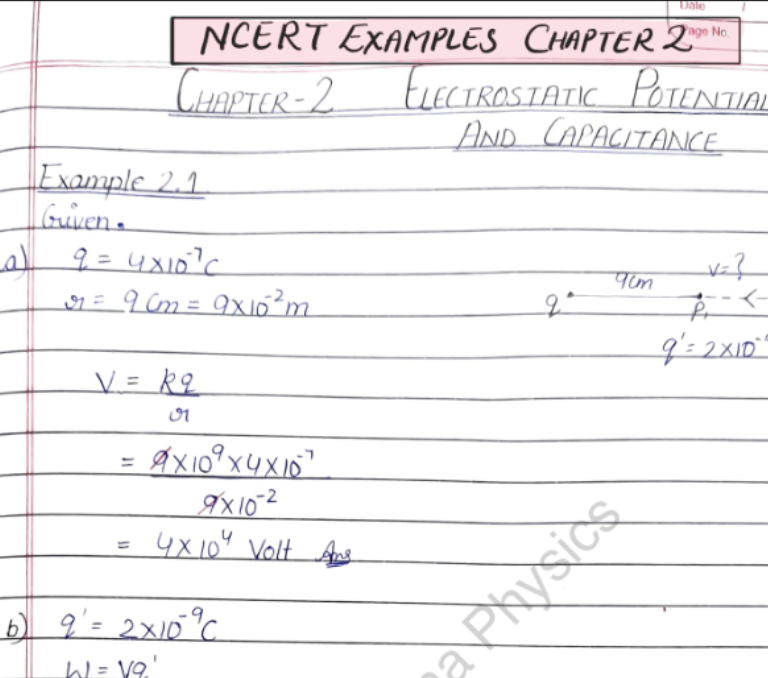 Date
Page No.
NCERT EXAMPLES CHAPTER 2
CHAPTER-2 ELECTROSTATIC POTENTIAL
AND CAPACITANCE
Example 2.1
Given.
a) q = 4×10⁻⁷C
r = 9 Cm = 9×10⁻²m
q 9cm P₁ V=?
q' = 2×10⁻
V = kq
r
= 9×10⁹×4×10⁻⁷
9×10⁻²
= 4×10⁴ Volt Ans
b) q' = 2×10⁻⁹C
W = Vq'
Physics